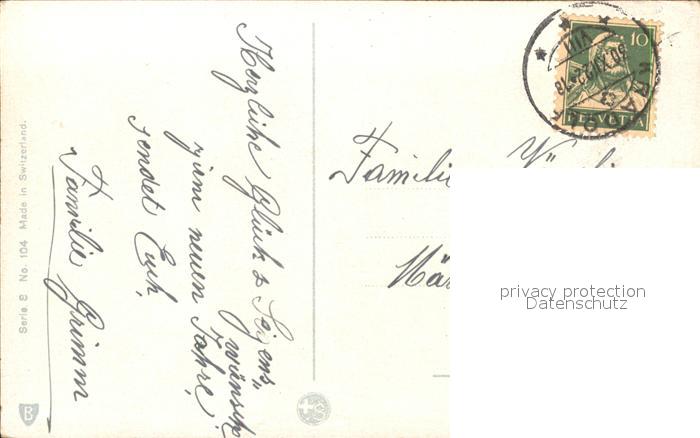 Serie 8 No. 104 Made in Switzerland.
Herzliche Glück & Segens„
wünsche
zum neuen Jahre,
sendet Euch,
Familie Grimm
Familie
10
HELVETIA
VIII
privacy protection
Datenschutz
B